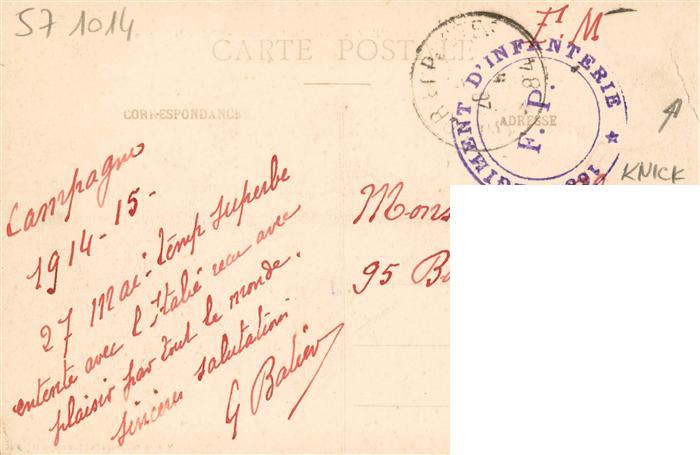 57 1014
F. M
CARTE POSTALE
CORRESPONDANCE
ADRESSE
RÉGIMENT D'INFANTERIE ★
F. P.
KNICK
Campagne
1914-15-
27 Mai. temp superbe
entente avec l'Italie recu avec
plaisir par tout le monde.
sinceres salutations
G
Mons
95 Bo